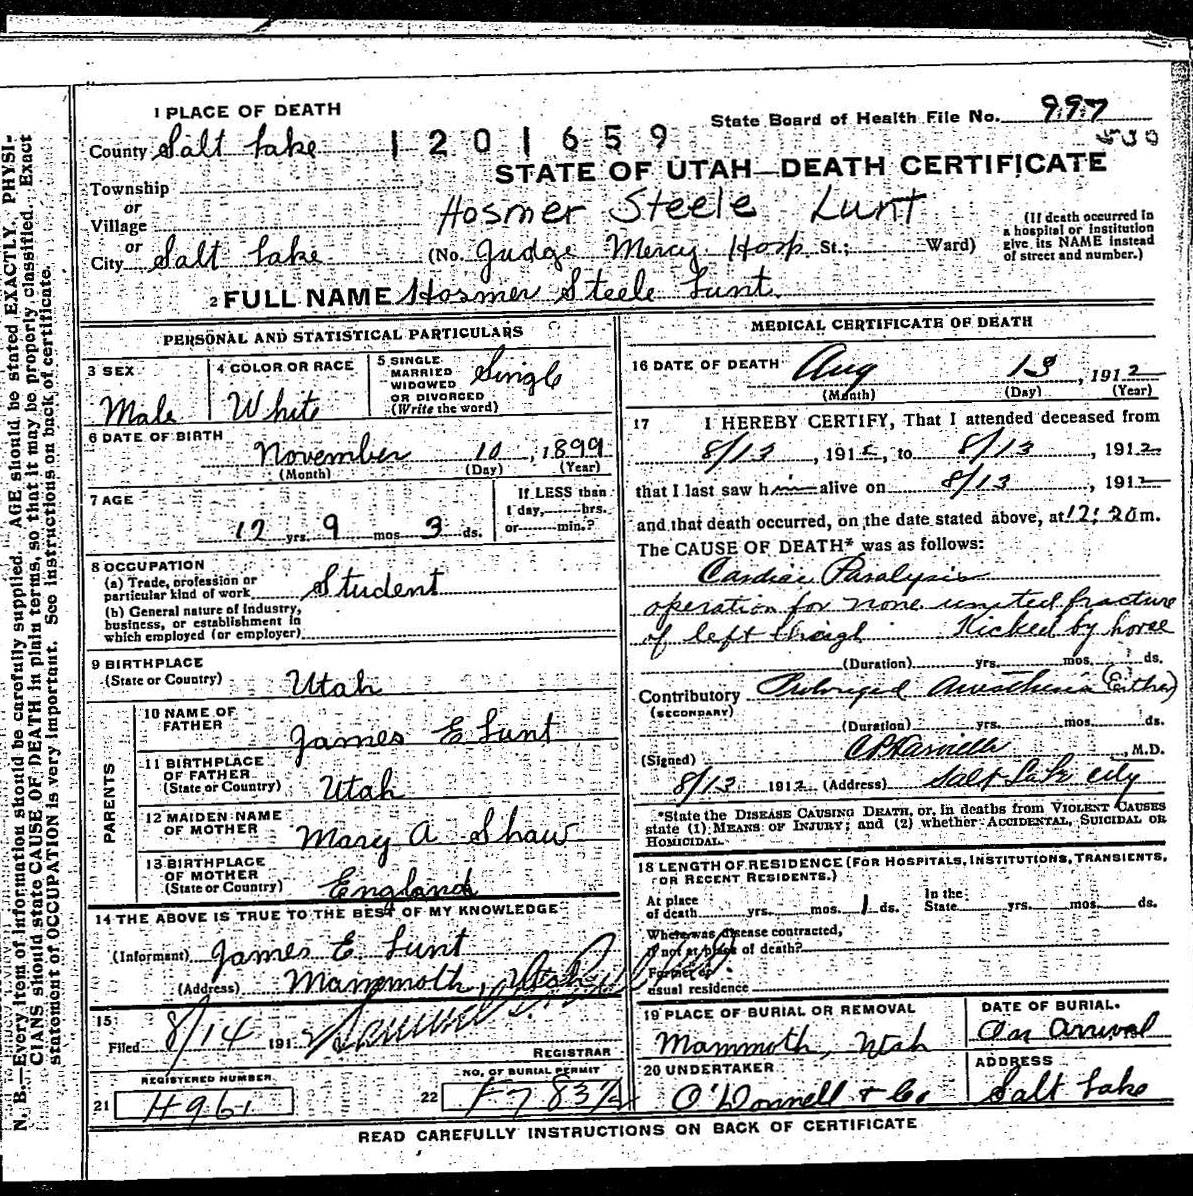 1 PLACE OF DEATH
State Board of Health File No. 997
530
County Salt Lake
1201659
STATE OF UTAH—DEATH CERTIFICATE
Township
or
Village
Hosmer Steele Lunt
(If death occurred in a hospital or institution give its NAME instead of street and number.)
or
City Salt Lake (No. Judge Mercy Hosp St.; Ward)
2 FULL NAME Hosmer Steele Lunt
PERSONAL AND STATISTICAL PARTICULARS
3 SEX Male
4 COLOR OR RACE White
5 SINGLE MARRIED WIDOWED OR DIVORCED (Write the word) Single
6 DATE OF BIRTH
November 10, 1899
(Month) (Day) (Year)
7 AGE
12 yrs. 9 mos. 3 ds.
If LESS than 1 day, hrs. or min.?
8 OCCUPATION
(a) Trade, profession or particular kind of work Student
(b) General nature of Industry, business, or establishment in which employed (or employer)
9 BIRTHPLACE
(State or Country) Utah
PARENTS
10 NAME OF FATHER James E Lunt
11 BIRTHPLACE OF FATHER (State or Country) Utah
12 MAIDEN NAME OF MOTHER Mary A Shaw
13 BIRTHPLACE OF MOTHER (State or Country) England
14 THE ABOVE IS TRUE TO THE BEST OF MY KNOWLEDGE
(Informant) James E Lunt
(Address) Mammoth, Utah
15
Filed 8/14 191
REGISTRAR
REGISTERED NUMBER
21 H961
NO. OF BURIAL PERMIT
22
MEDICAL CERTIFICATE OF DEATH
16 DATE OF DEATH Aug 13, 1912
(Month) (Day) (Year)
17 I HEREBY CERTIFY, That I attended deceased from
8/13, 1912, to 8/13, 1912
that I last saw him alive on 8/13, 1912
and that death occurred, on the date stated above, at 12:20 m.
The CAUSE OF DEATH* was as follows:
Cardiac Paralysis
operation for none united fracture
of left thigh Kicked by horse
(Duration) yrs. mos. ds.
Contributory Prolonged Anesthesia (Ether)
(SECONDARY)
(Duration) yrs. mos. ds.
(Signed) M.D.
8/13 1912 (Address) Salt Lake City
*State the DISEASE CAUSING DEATH, or, in deaths from VIOLENT CAUSES state (1) MEANS OF INJURY; and (2) whether ACCIDENTAL, SUICIDAL OR HOMICIDAL.
18 LENGTH OF RESIDENCE (FOR HOSPITALS, INSTITUTIONS, TRANSIENTS, OR RECENT RESIDENTS.)
At place of death yrs. mos. 1 ds. In the State yrs. mos. ds.
Where was disease contracted, if not at place of death?
Former or usual residence
19 PLACE OF BURIAL OR REMOVAL
Mammoth, Utah
DATE OF BURIAL.
On Arrival
20 UNDERTAKER
O'Donnell & Co
ADDRESS
Salt Lake
READ CAREFULLY INSTRUCTIONS ON BACK OF CERTIFICATE
N. B.—Every item of information should be carefully supplied. AGE should be stated EXACTLY. PHYSI-
CIANS should state CAUSE OF DEATH in plain terms, so that it may be properly classified. Exact
statement of OCCUPATION is very important. See instructions on back of certificate.